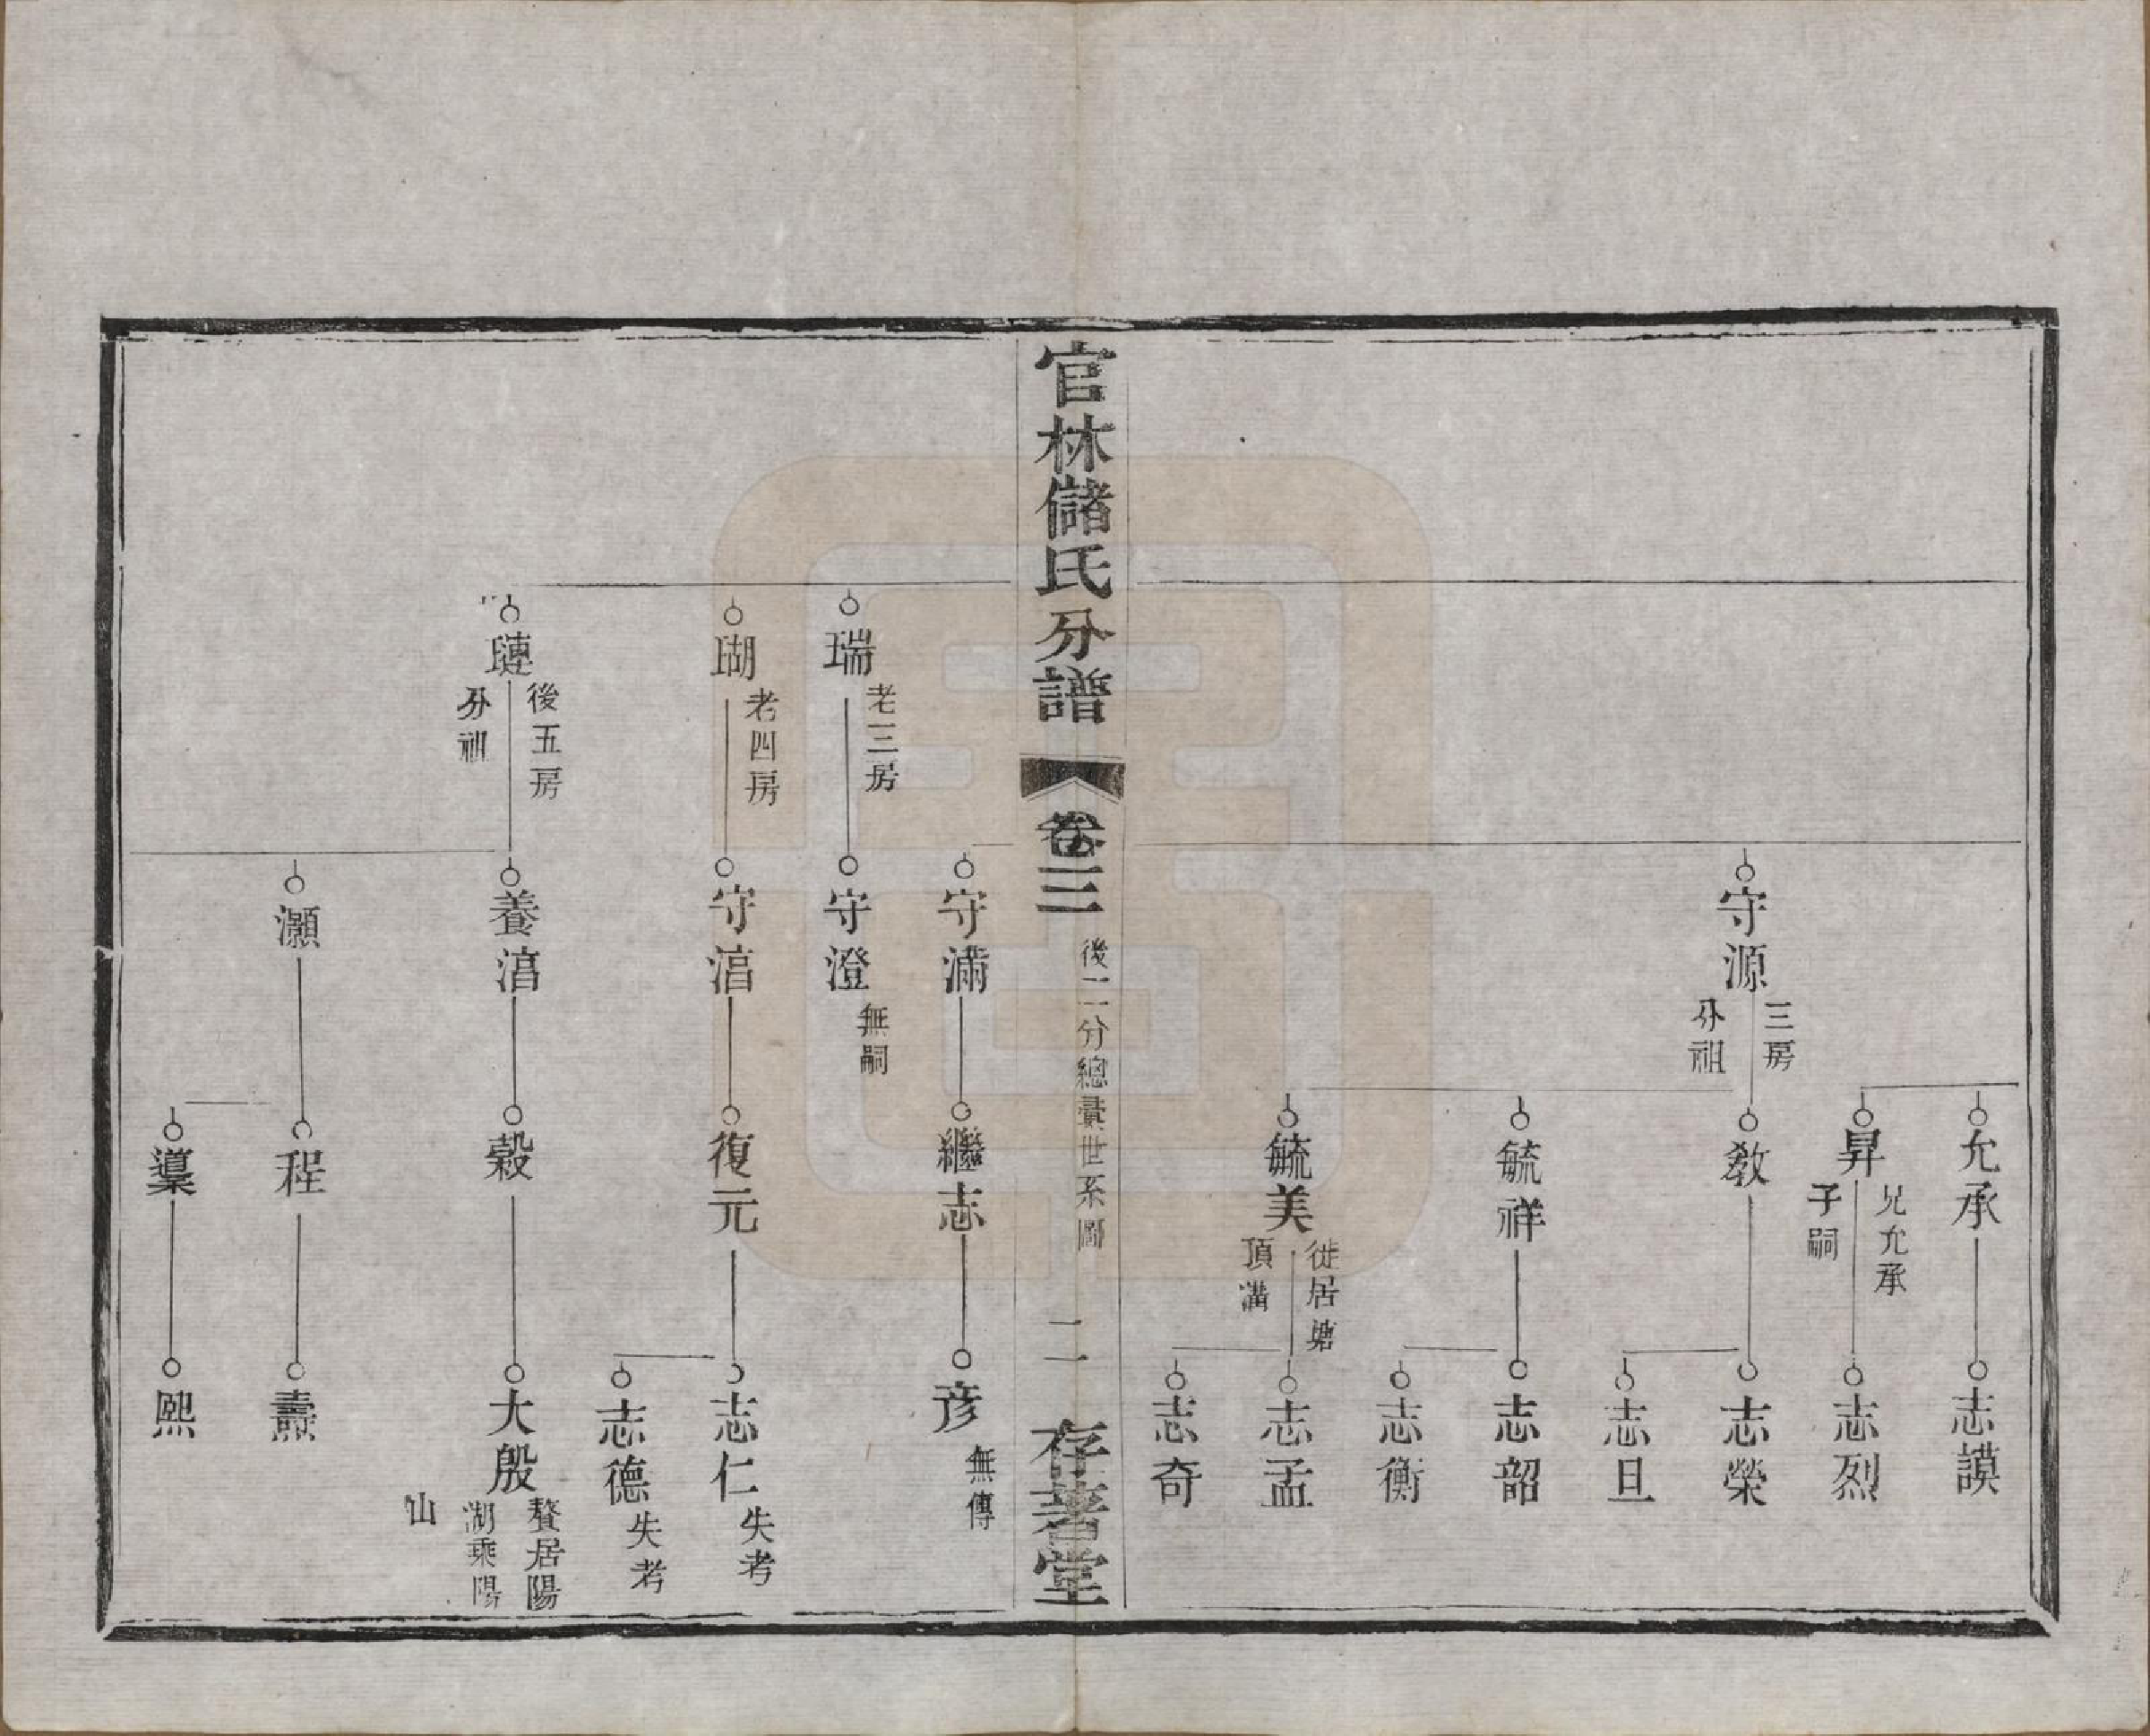 允承
志謨
昇
兄允承
子嗣
志烈
守源
三房
分祖
教
志榮
志旦
毓祥
志韶
志衡
毓美
徙居塘
頂溝
志孟
志奇
官林儲氏分譜
卷三
後二分總彙世系圖
二
存著堂
守滿
繼志
彦
無傳
瑞
老三房
守澄
無嗣
瑚
老四房
守湻
復元
志仁
失考
志德
失考
璉
後五房
分祖
養湻
穀
大殷
贅居陽
湖乘陽
山
灝
程
燾
熙